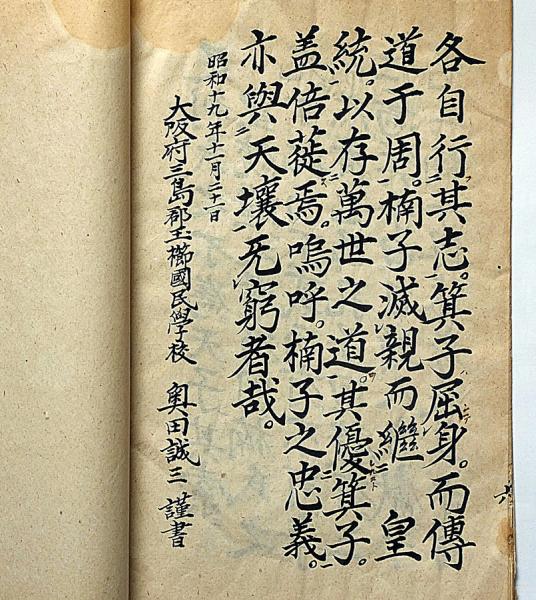 各自行其志。箕子屈身。而傳
道于周。楠子滅親而繼 皇
統。以存萬世之道。其優箕子。
盖倍蓰焉。嗚呼。楠子之忠義。
亦與天壤旡窮者哉。
昭和十九年十一月二十一日
大阪府三島郡玉櫛國民學校 奥田誠三 謹書